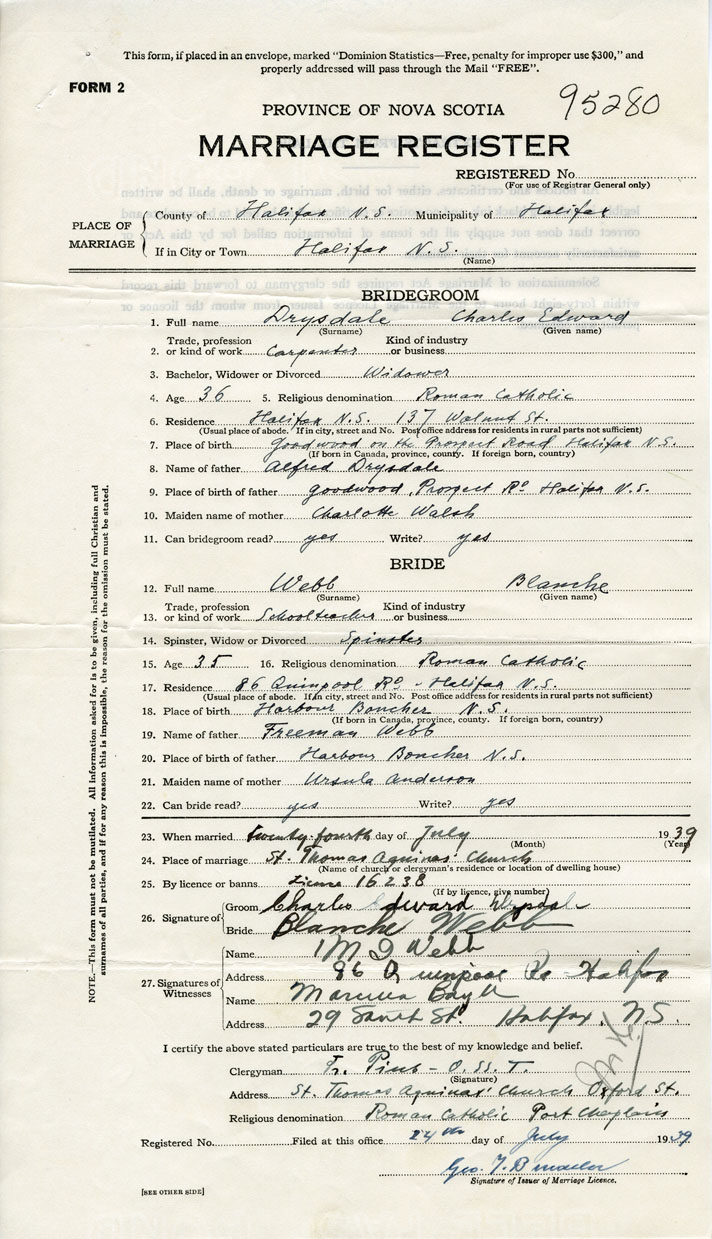 This form, if placed in an envelope, marked "Dominion Statistics—Free, penalty for improper use $300," and
properly addressed will pass through the Mail "FREE".
FORM 2
95280
PROVINCE OF NOVA SCOTIA
MARRIAGE REGISTER
REGISTERED No.
(For use of Registrar General only)
PLACE OF MARRIAGE
County of Halifax N.S. Municipality of Halifax
If in City or Town Halifax N.S.
(Name)
BRIDEGROOM
1. Full name Drysdale Charles Edward
(Surname) (Given name)
Trade, profession Kind of industry
2. or kind of work Carpenter or business
3. Bachelor, Widower or Divorced Widower
4. Age 36 5. Religious denomination Roman Catholic
6. Residence Halifax N.S. 137 Walnut St.
(Usual place of abode. If in city, street and No. Post office address for residents in rural parts not sufficient)
7. Place of birth Goodwood on the Prospect Road Halifax N.S.
(If born in Canada, province, county. If foreign born, country)
8. Name of father Alfred Drysdale
9. Place of birth of father goodwood, Prospect Rd Halifax N.S.
10. Maiden name of mother Charlotte Walsh
11. Can bridegroom read? yes Write? yes
BRIDE
12. Full name Webb Blanche
(Surname) (Given name)
Trade, profession Kind of industry
13. or kind of work Schoolteacher or business
14. Spinster, Widow or Divorced Spinster
15. Age 35 16. Religious denomination Roman Catholic
17. Residence 86 Quinpool Rd - Halifax N.S.
(Usual place of abode. If in city, street and No. Post office address for residents in rural parts not sufficient)
18. Place of birth Harbour Boucher N.S.
(If born in Canada, province, county. If foreign born, country)
19. Name of father Freeman Webb
20. Place of birth of father Harbour Boucher N.S.
21. Maiden name of mother Ursula Anderson
22. Can bride read? yes Write? yes
23. When married twenty-fourth day of July 1939
(Month) (Year)
24. Place of marriage St. Thomas Aquinas' Church
(Name of church or clergyman's residence or location of dwelling house)
25. By licence or banns License 16238
(If by licence, give number)
26. Signature of
Groom Charles Edward Drysdale
Bride Blanche Webb
27. Signatures of Witnesses
Name Webb
Address 86 Quinpool Rd - Halifax
Name
Address 29 St. Halifax, N.S.
I certify the above stated particulars are true to the best of my knowledge and belief.
Clergyman Fr. Pius - O.SS.T.
(Signature)
Address St. Thomas Aquinas' Church Oxford St.
Religious denomination Roman Catholic Port Chaplain
Registered No. Filed at this office 24th day of July 1939
Geo.
Signature of Issuer of Marriage Licence.
[SEE OTHER SIDE]
NOTE.—This form must not be mutilated. All information asked for is to be given, including full Christian and
surnames of all parties, and if for any reason this is impossible, the reason for the omission must be stated.